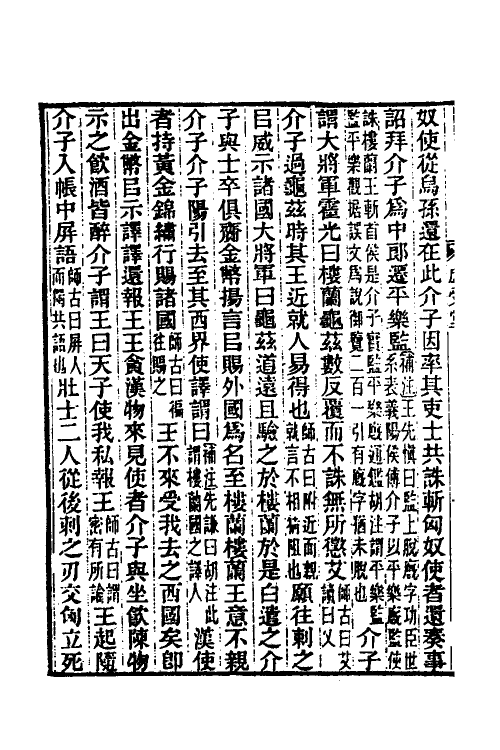 奴使從烏孫還在此介子因率其吏士共誅斬匈奴使者還奏事
詔拜介子爲中郎遷平樂監補注王先愼曰監上脫廐字功臣世系表義陽侯傅介子以平樂廐監使
誅樓蘭王斬首侯是介子實監平樂廐通鑑胡注謂平樂監監平樂觀据誤文爲說御覽二百一引有廐字猶未脫也介子
謂大將軍霍光曰樓蘭龜茲數反覆而不誅無所懲艾師古曰艾讀曰乂
介子過龜茲時其王近就人易得也師古曰附近而親就言不相猜阻也願往刺之
㠯威示諸國大將軍曰龜茲道遠且驗之於樓蘭於是白遣之介
子與士卒俱齎金幣揚言㠯賜外國爲名至樓蘭樓蘭王意不親
介子介子陽引去至其西界使譯謂曰補注先謙曰胡注此謂樓蘭國之譯人漢使
者持黃金錦繡行賜諸國師古曰徧往賜之王不來受我去之西國矣卽
出金幣㠯示譯譯還報王王貪漢物來見使者介子與坐飮陳物
示之飮酒皆醉介子謂王曰天子使我私報王師古曰謂密有所論王起隨
介子入帳中屏語師古曰屏人而獨共語也壯士二人從後刺之刃交匈立死